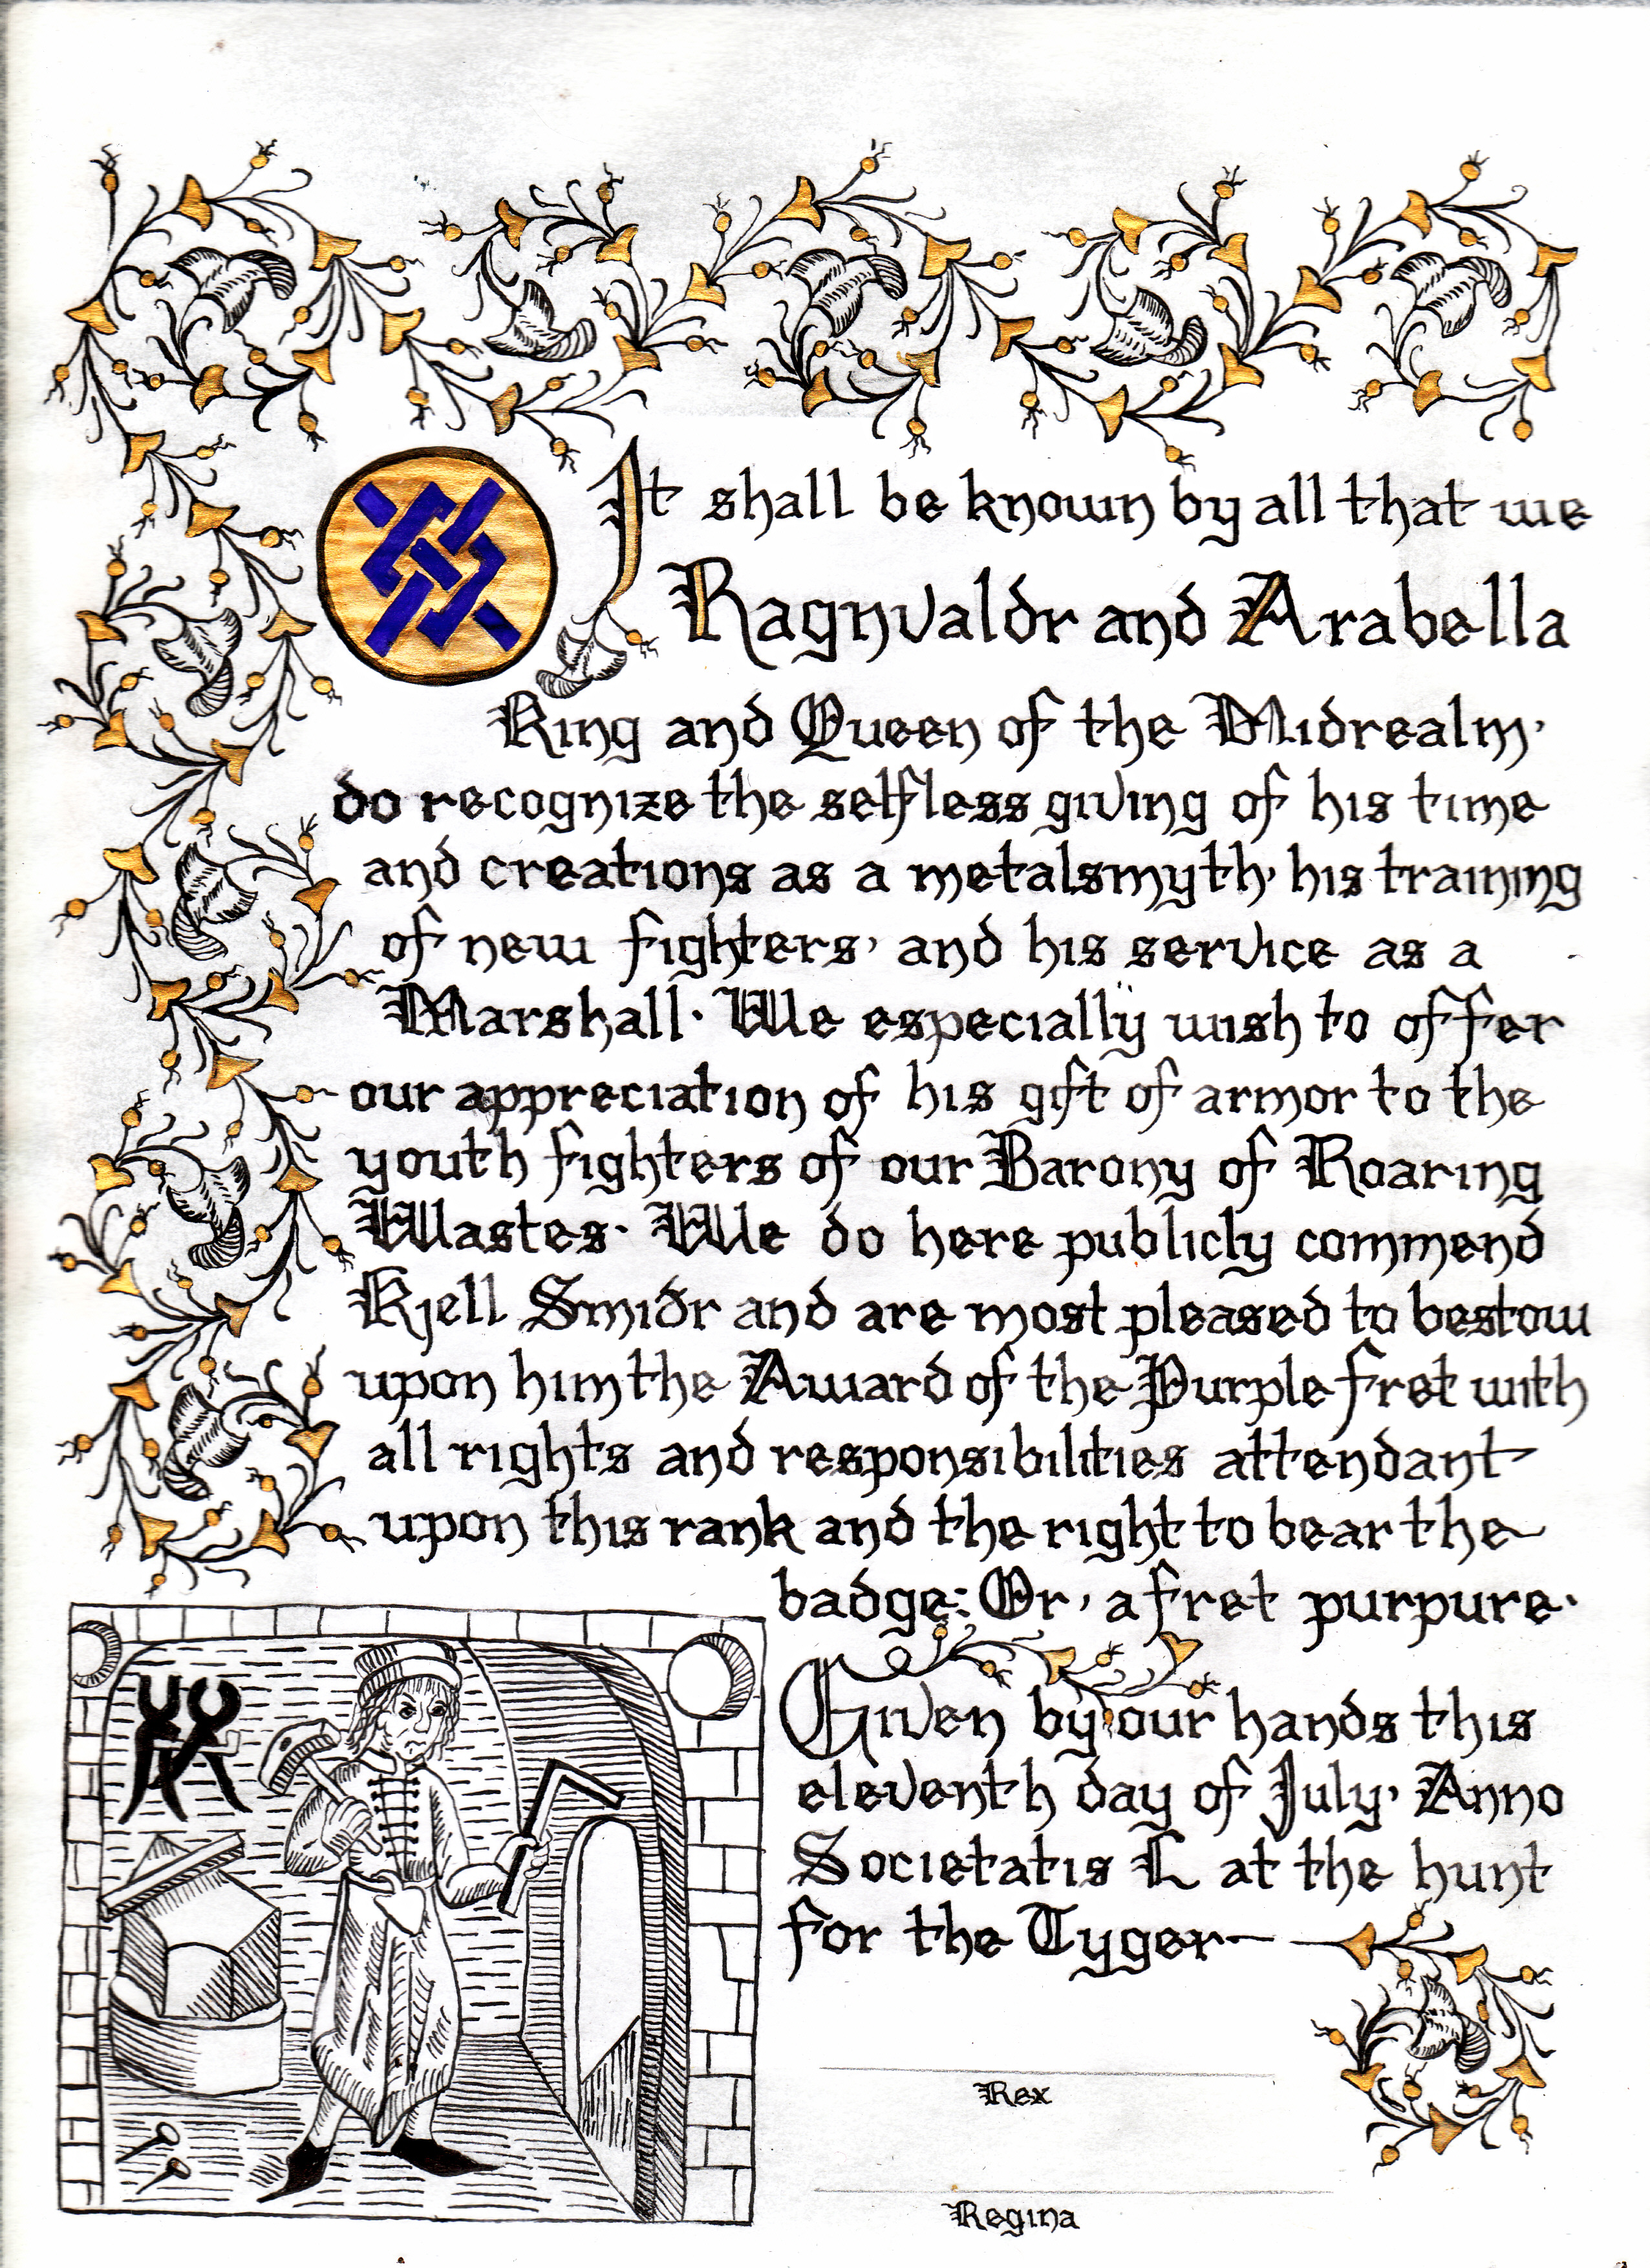 It shall be known by all that we
Ragnvaldr and Arabella
King and Queen of the Midrealm,
do recognize the selfless giving of his time
and creations as a metalsmyth, his training
of new fighters, and his service as a
Marshall. We especially wish to offer
our appreciation of his gift of armor to the
youth fighters of our Barony of Roaring
Wastes. We do here publicly commend
Kjell Smiðr and are most pleased to bestow
upon him the Award of the Purple fret with
all rights and responsibilities attendant
upon this rank and the right to bear the
badge: Or, a fret purpure.
Given by our hands this
eleventh day of July, Anno
Societatis L at the hunt
for the Tyger
Rex
Regina